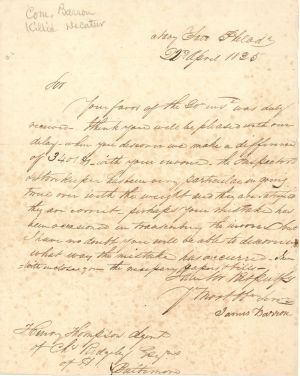 Com. Barron
Killed Decatur
Navy Yard Philad.
2d April 1825
Sir
Your favor of the 30 ins. was duly
received I think you will be pleased with our
delay when you discover we make a difference
of 3401 with your invoice, the Inspector
& storekeeper has been very particular in going
twice over with the weight and they are satisfied
they are correct, perhaps your mistake has
been occasioned in transcribing the invoice but
I have no doubt you will be able to discover
what way the mistake has occurred.
you the necessary papers & bills
I am Sir Respectfully
James Barron
Henry Thompson Agent
of Chs Ridgely
Baltimore